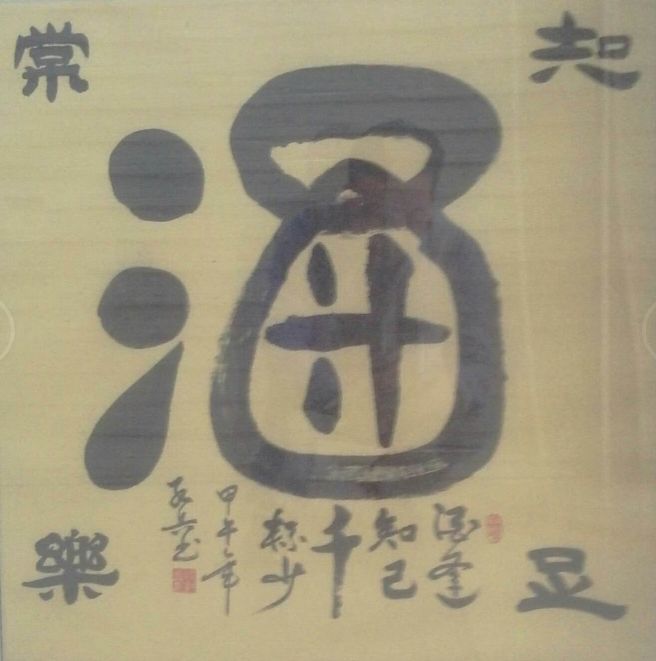 知足
常樂
酒
酒逢
知己
千
杯少
甲午年